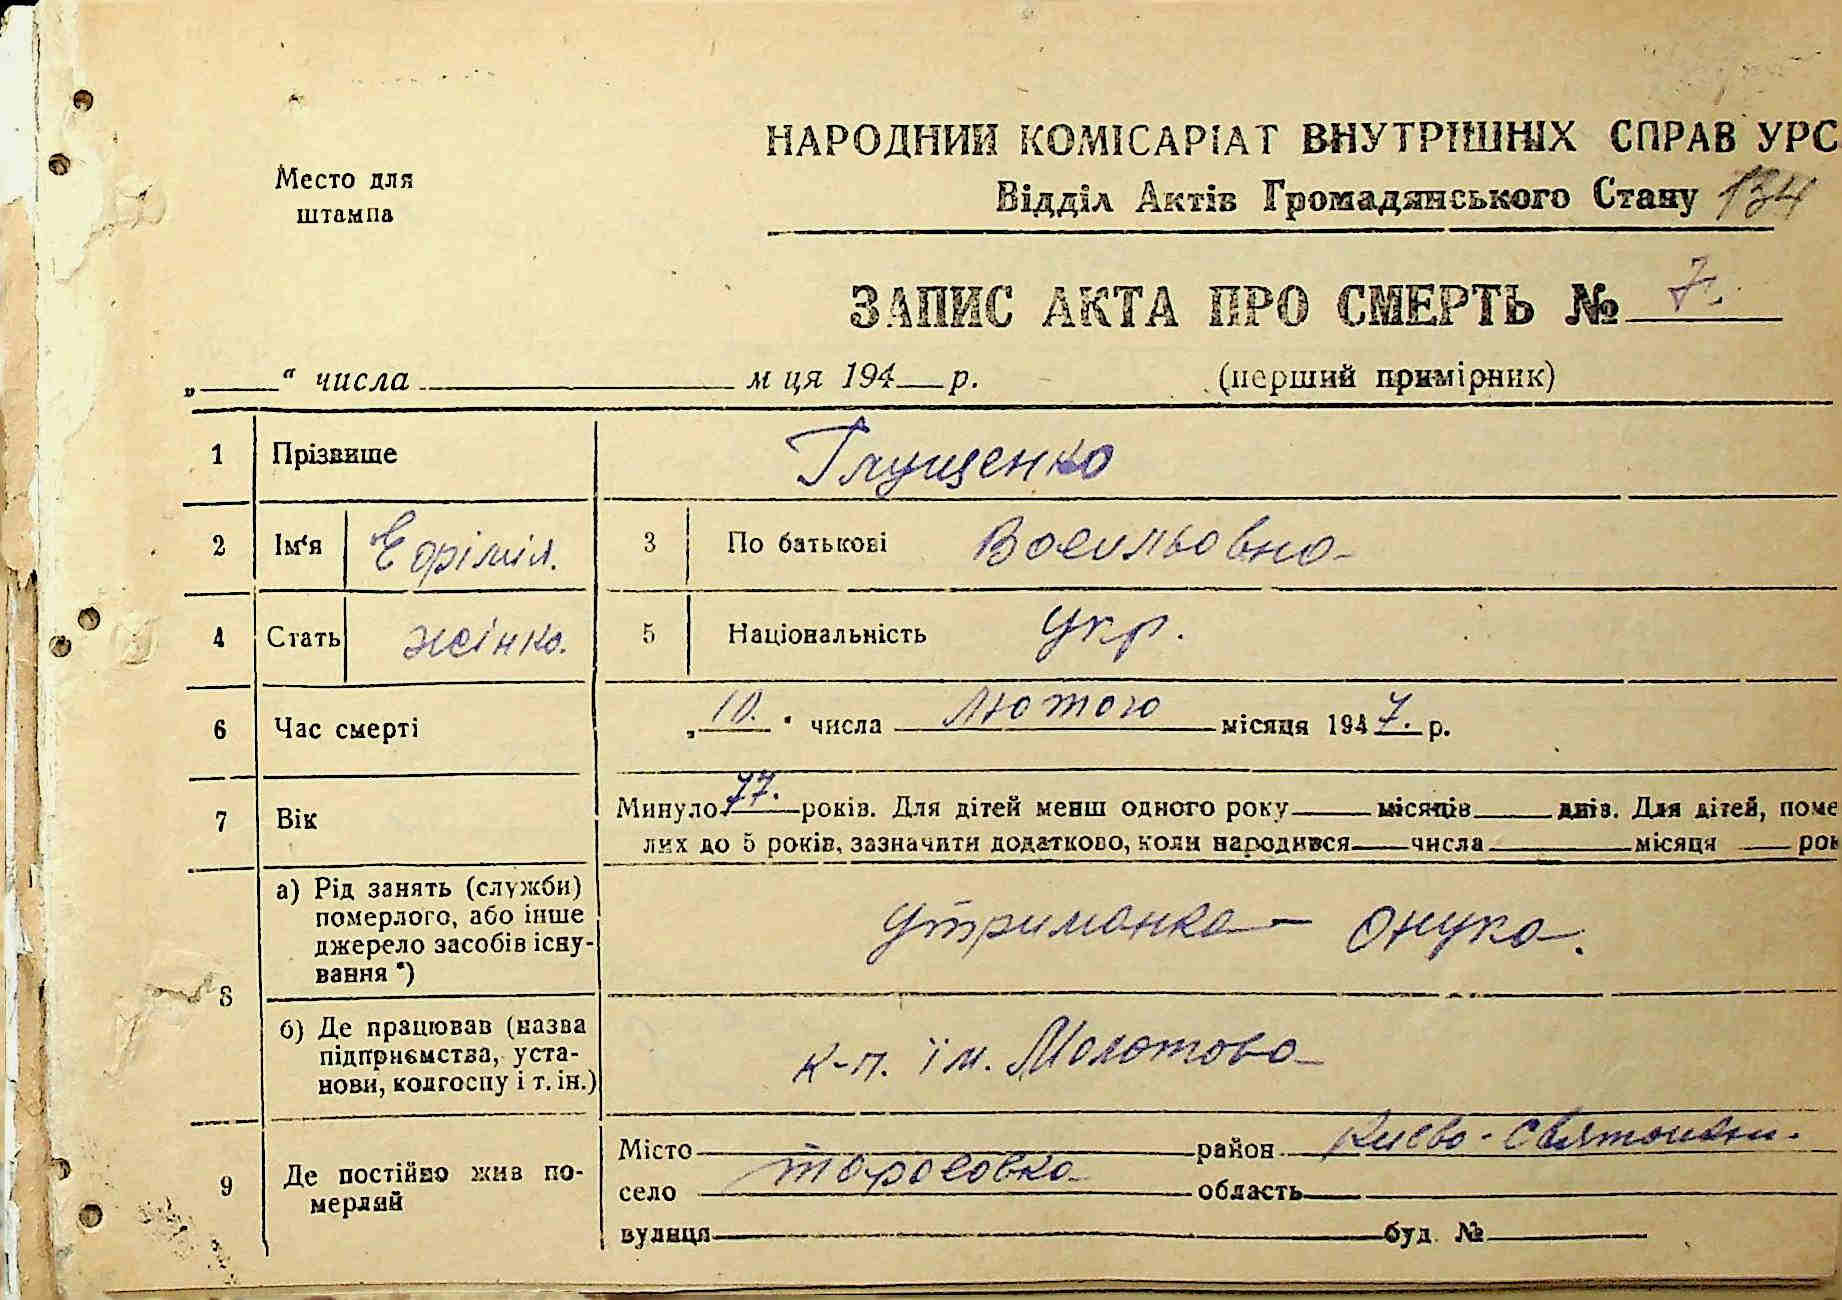 НАРОДНИЙ КОМІСАРІАТ ВНУТРІШНІХ СПРАВ УРС
Место для
штампа
Відділ Актів Громадянського Стану 134
ЗАПИС АКТА ПРО СМЕРТЬ № 7.
„ “ числа м ця 194 р. (перший примірник)
1 Прізвище Глущенко
2 Ім‘я 3 По батькові Васильовна
4 Стать жінка. 5 Національність Укр.
6 Час смерті „10.“ числа Лютого місяця 1947. р.
7 Вік Минуло 77. років. Для дітей менш одного року місяців днів. Для дітей, поме
лих до 5 років, зазначити додатково, коли народився числа місяця рок
8 а) Рід занять (служби)
померлого, або інше
джерело засобів існу-
вання *)
Утриманка онука.
б) Де працював (назва
підприємства, уста-
нови, колгоспу і т. ін.)
к-п. їм. Молотова
9 Де постійно жив по-
мерлий
Місто район Києво-Святошин.
село Тарасовка область
вулиця буд. №